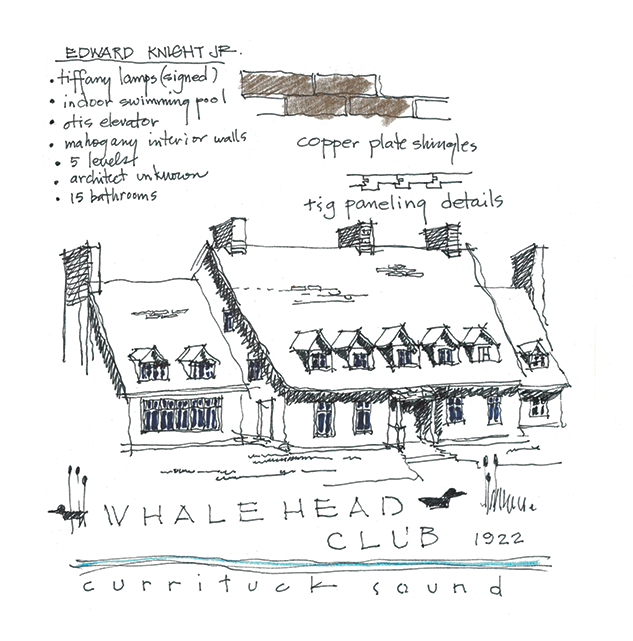 EDWARD KNIGHT JR.
• tiffany lamps (signed)
• indoor swimming pool
• otis elevator
• mahogany interior walls
• 5 levels
• architect unknown
• 15 bathrooms
copper plate shingles
t&g paneling details
WHALEHEAD
CLUB 1922
currituck sound